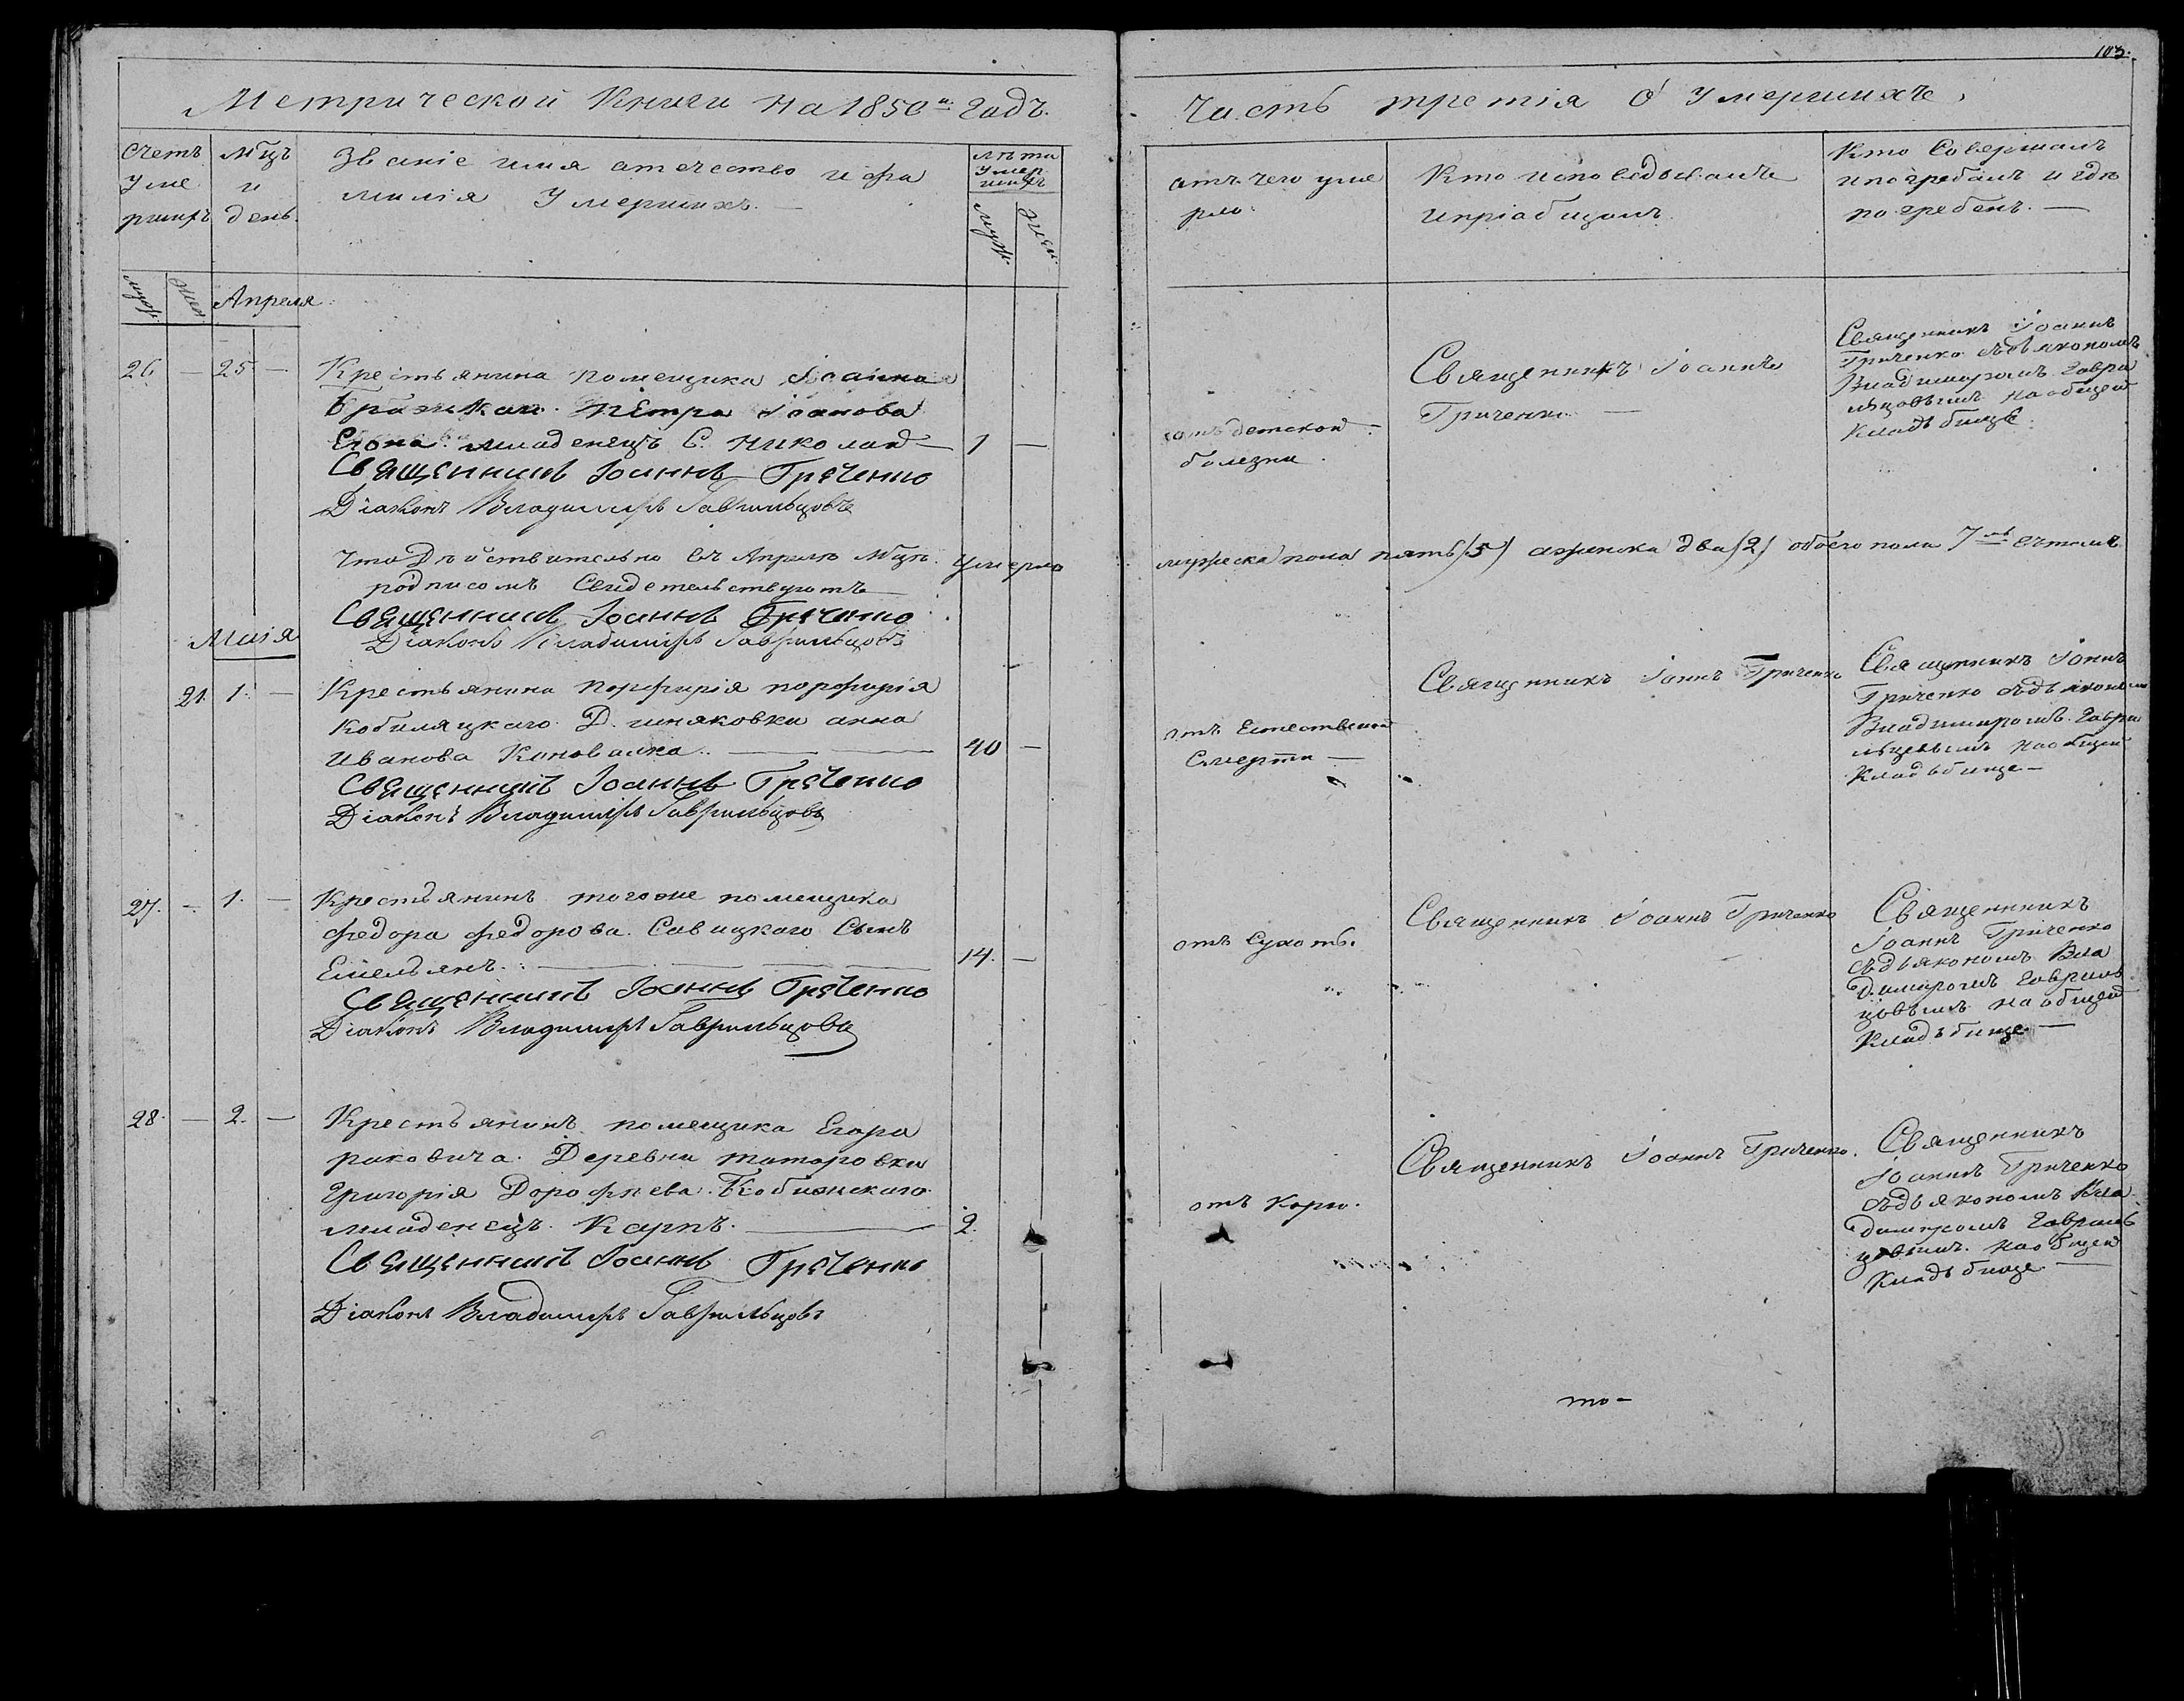 103.
Метрической Книги на 1850й Годъ.
Часть третія О Умершихъ.
Счетъ Умершихъ
Мцъ и день.
Званіе имя отечество и фамилія Умершихъ. —
Лѣта Умершихъ
муж. жен.
отъ чего умерло.
Кто исповедывалъ и пріобщалъ.
Кто Совершалъ и погребалъ и где погребенъ. —
муж. жен.
Апреля
26 — 25 —
Крестьянина помещика Іоанна
Петра Іоанова
младенецъ С. Николай — 1 —
Священникъ Іоаннъ Гриченко
Діаконъ Владимиръ Гаврильцовъ
отъ детской
болезни.
Священникъ Іоаннъ
Гриченко —
Священникъ Іоаннъ
Гриченко съдьякономъ
Владимиромъ Гаври
льцовымъ на общей
Кладьбище.
Что Дѣйствительно въ Апрелѣ Мцѣ. Умерло мужеска пола пять (5) а женска два (2) обоего пола 7мь Считомъ
подписомъ Свидетельствуютъ
Священникъ Іоаннъ Гриченко
Діаконъ Владимиръ Гаврильцовъ
Маія
21. 1. —
Крестьянина Порфирія порфирія
Кобиляцкаго Д. анна
Иванова Коновалка. — 40 —
Священникъ Іоаннъ Гриченко
Діаконъ Владимиръ Гаврильцовъ
отъ Естественой
Смерти —
Священникъ Іоанъ Гриченко
Священникъ Іоанъ
Гриченко съдьякономъ
Владимиромъ Гаври
льцовымъ на общей
Кладьбище —
27. — 1. —
Крестьянинъ тогоже помещика
Федора Федорова Савицкаго Сынъ
Емельянъ. — 14. —
Священникъ Іоаннъ Гриченко
Діаконъ Владимиръ Гаврильцовъ
отъ Сухоты.
Священникъ Іоаннъ Гриченко
Священникъ
Іоаннъ Гриченко
съдьякономъ Вла
димиромъ Гавриль
цовымъ на общей
Кладьбище —
28. — 2. —
Крестьянинъ помещика Егора
раковича. Деревни татаровки
Григорія Дорофеева
младенецъ Карпъ. — 2.
Священникъ Іоаннъ Гриченко
Діаконъ Владимиръ Гаврильцовъ
отъ Кори.
Священникъ Іоаннъ Гриченко.
Священникъ
Іоаннъ Гриченко
съдьякономъ Вла
димиромъ Гавриль
цовымъ на общей
Кладьбище —
то —